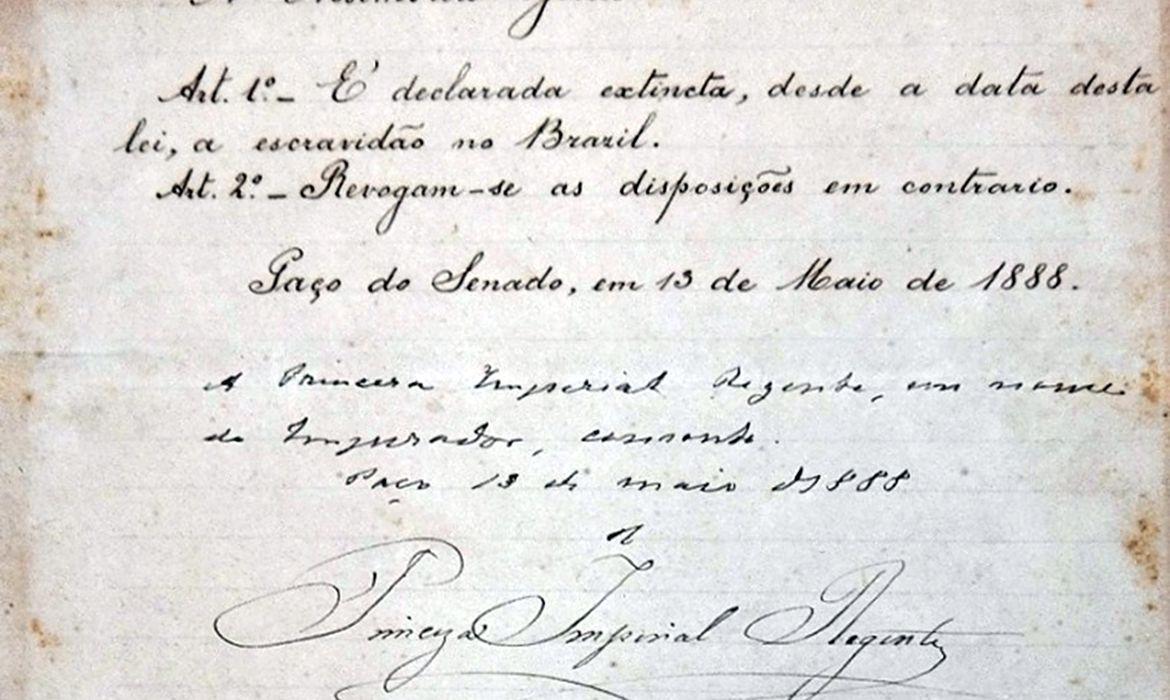 A Assembléa Geral
Art. 1º - É declarada extincta, desde a data desta
lei, a escravidão no Brazil.
Art. 2º - Revogam-se as disposições em contrario.
Paço do Senado, em 13 de Maio de 1888.
A Princeza Imperial Regente, em nome
do Imperador, consente.
Paço 13 de maio de 1888
A
Princeza Imperial Regente